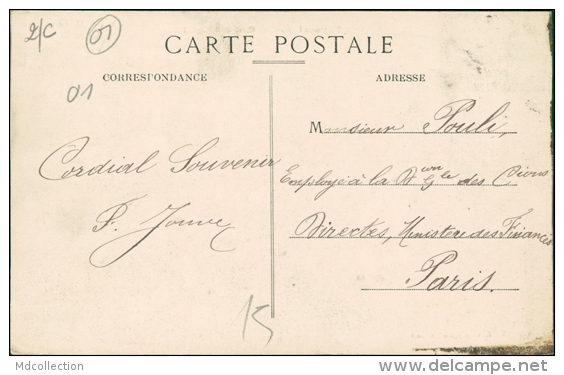 2/C
01
CARTE POSTALE
CORRESPONDANCE
ADRESSE
01
Monsieur Pouli,
Cordial Souvenir
Employé à la Don Gle des Cions
F. Jouve
Directes, Ministère des Finances
Paris.
15
Mdcollection
delcampe.net